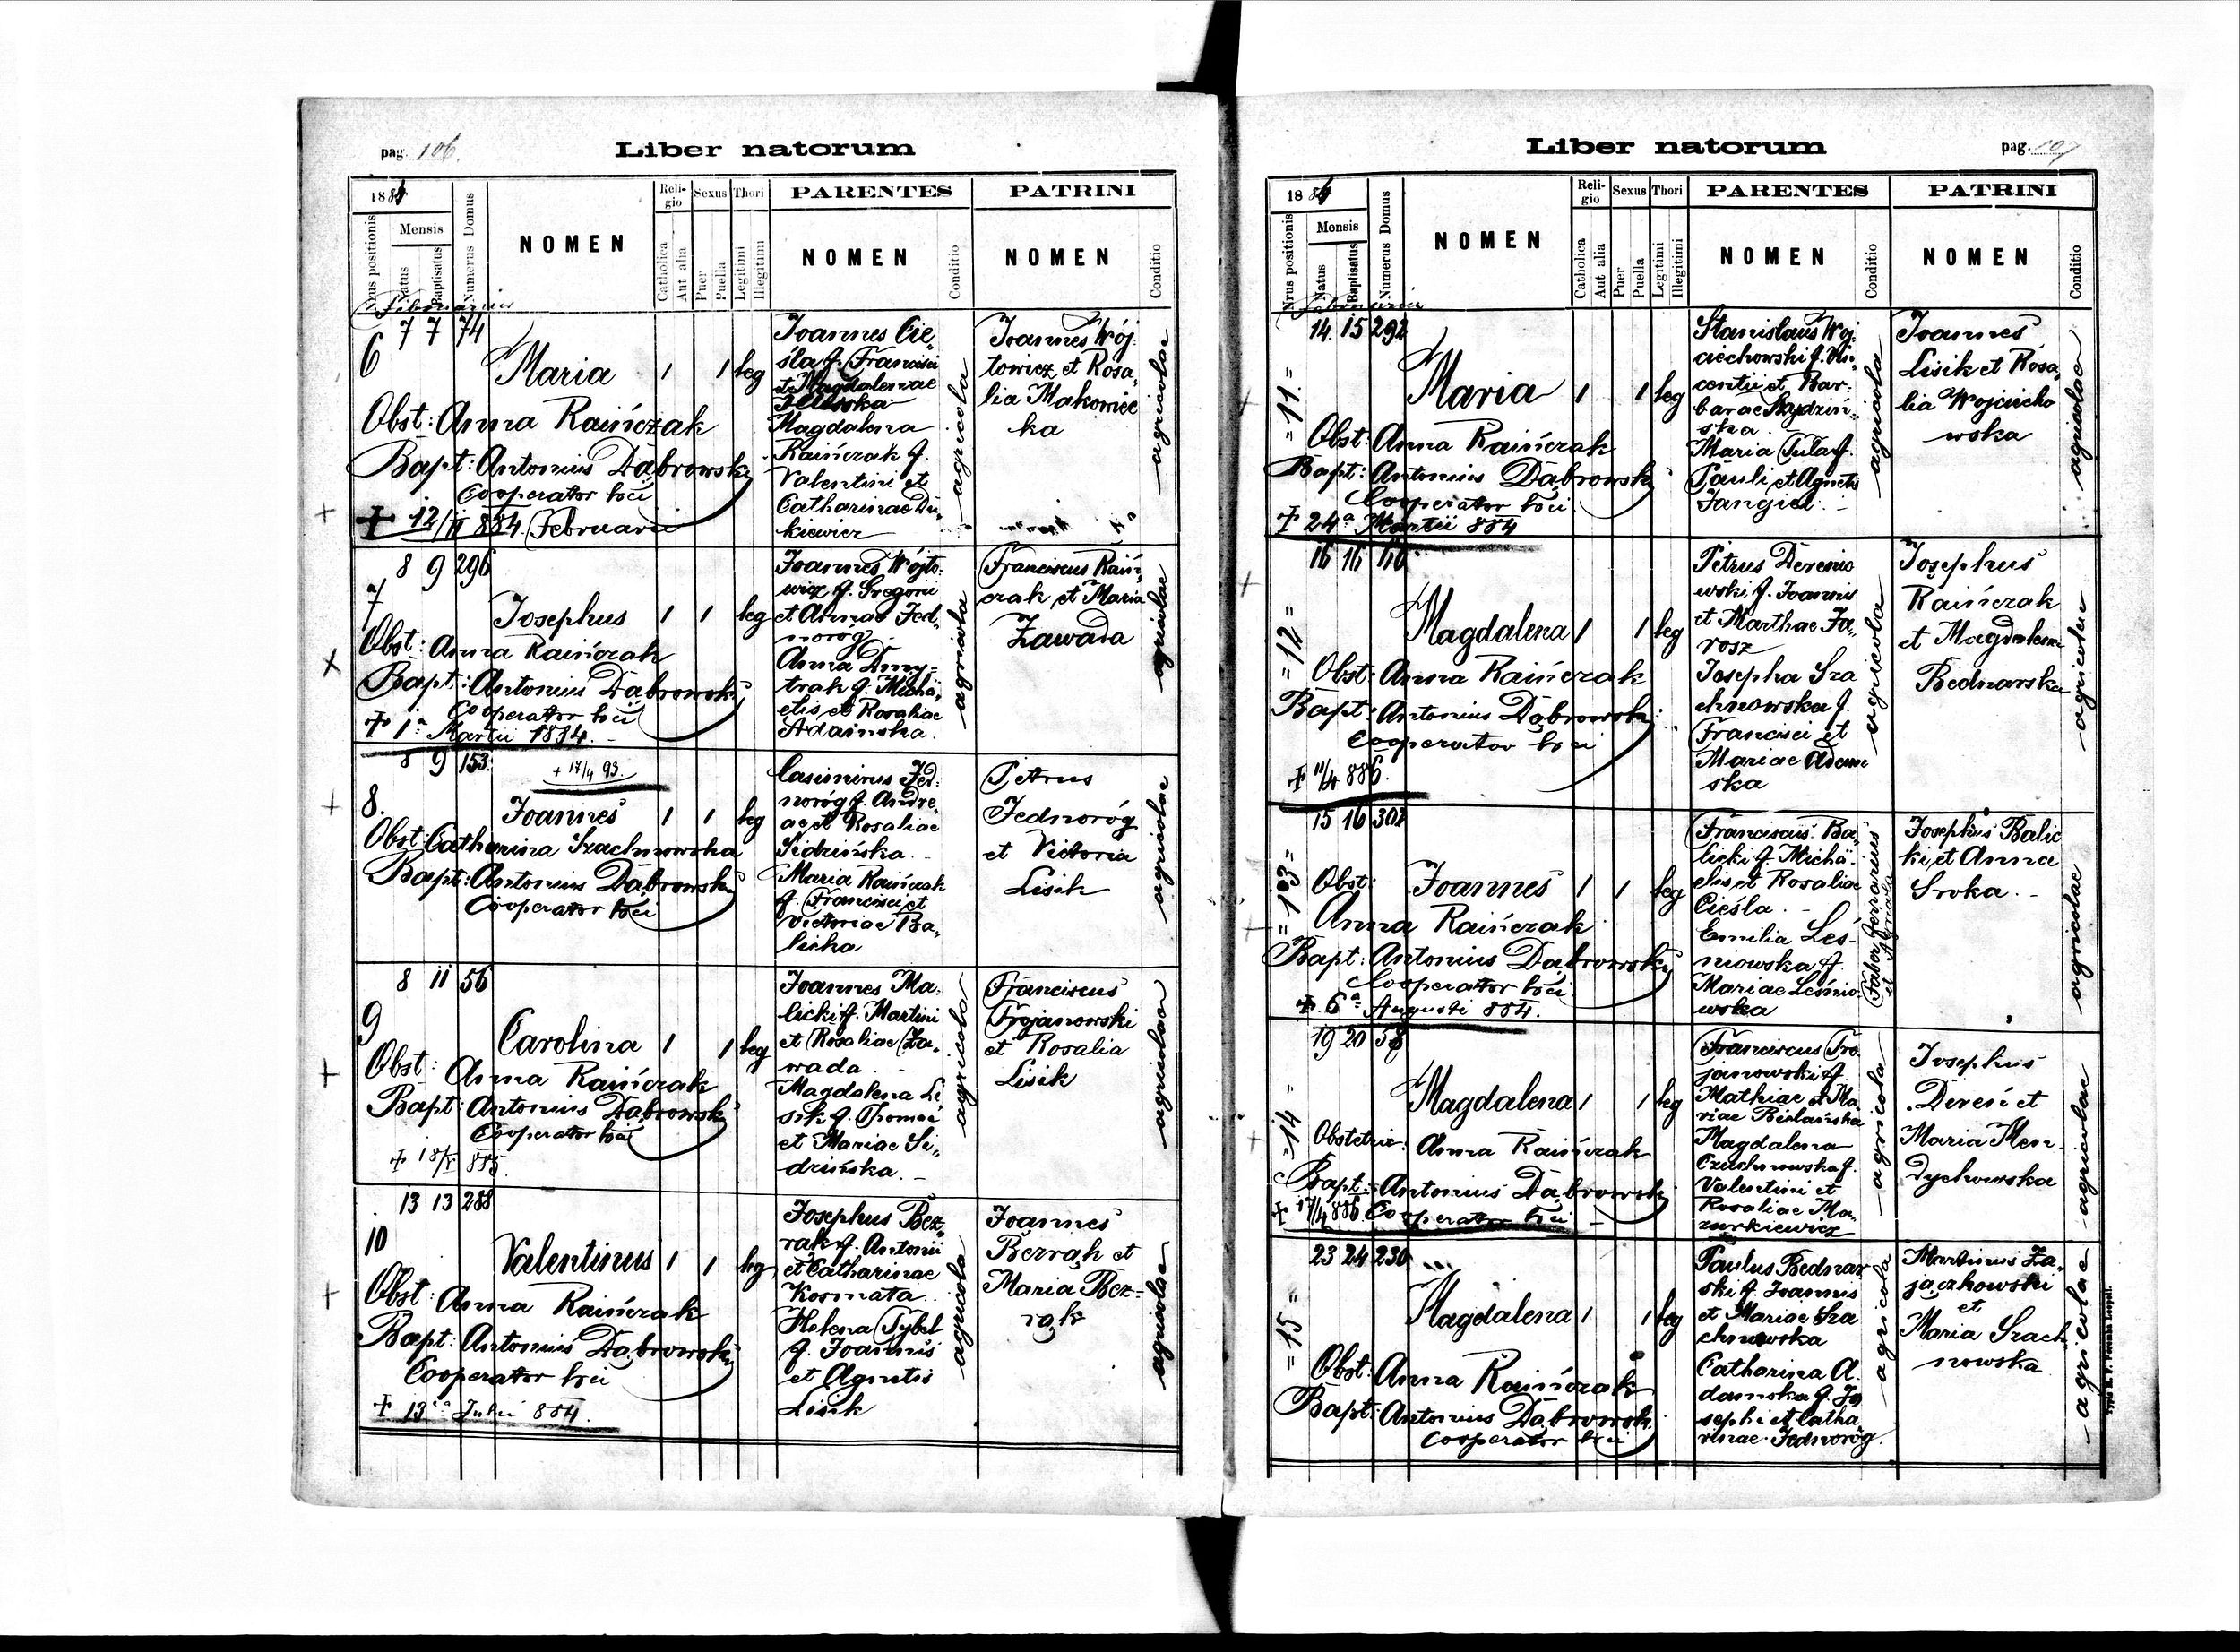 pag. 106.
Liber natorum
1884
Nrus positionis
Mensis
Natus
Baptisatus
Numerus Domus
NOMEN
Religio
Catholica
Aut alia
Sexus
Puer
Puella
Thori
Legitimi
Illegitimi
PARENTES
NOMEN
Conditio
PATRINI
NOMEN
Conditio
Februarius
6
7 7 74
Maria
1 1 leg
Obst: Anna Raińczak
Bapt: Antonius Dąbrowski
Cooperator loci
+ 12/II 884. Februarii
Joannes Cie,
śla f. Francisci
et Magdalenae
Magdalena
Raińczak f.
Valentini et
Catharinae Du,
kiewicz
agricola
Joannes Wój,
towicz et Rosa,
lia Makowiec
ka
agricolae
7
8 9 296
Josephus
1 1 leg
Obst: Anna Raińczak
Bapt: Antonius Dąbrowski
Cooperator loci
+ 1a Martii 1884. -
Joannes Wójto,
wicz f. Gregorii
et Annae Jed,
noróg
Anna Dmy=
trak f. Michä,
elis et Rosaliae
Adamska.
agricola
Franciscus Raiń,
czak et Maria
Zawada
agricolae
8.
8 9 153.
+ 17/4 93.
Joannes
1 1 leg
Obst: Catharina Szachnowska
Bapt: Antonius Dąbrowski
Cooperator loci
Casimirus Jed,
noróg f. Andre,
ae et Rosaliae
Sidzińska. -
Maria Raińczak
f. Francisci et
Victoriae Ba,
licka
Petrus
Jednoróg
et Victoria
Lisik
agricolae
9
8 11 56
Carolina
1 1 leg
Obst: Anna Raińczak
Bapt: Antonius Dąbrowski
Cooperator loci
+ 18/V 885.
Joannes Ma,
licki f. Martini
et Rosaliae Za,
wada. -
Magdalena Li
sik f. Thomae
et Mariae Si,
dzińska. -
agricola
Franciscus
Trojanowski
et Rosalia
Lisik
agricolae
10
13 13 288
Valentinus
1 1 leg
Obst: Anna Raińczak
Bapt: Antonius Dąbrowski
Cooperator loci
+ 13a Julii 884.
Josephus Bez,
rąk f. Antonii
et Catharinae
Kosmata.
Helena Tybel
f. Joannis
et Agnetis
Lisik
agricola
Joannes
Bezrąk et
Maria Bez=
rąk
agricolae
Liber natorum
pag. 107
1884
Nrus positionis
Mensis
Natus
Baptisatus
Numerus Domus
NOMEN
Religio
Catholica
Aut alia
Sexus
Puer
Puella
Thori
Legitimi
Illegitimi
PARENTES
NOMEN
Conditio
PATRINI
NOMEN
Conditio
Februarii
=11=
14. 15 292
Maria
1 1 leg
Obst: Anna Raińczak
Bapt: Antonius Dąbrowski
Cooperator loci
+ 24a Martii 884
Stanislaus Woj,
ciechowski f. Vin,
centii et Bar,
barae
ska.
Maria Tula f.
Pauli et Agnetis
Jangiel. -
agricola
Joannes
Lisik et Rosa,
lia Wojciecho
wska
agricolae
=12=
16 16 110
Magdalena
1 1 leg
Obst: Anna Raińczak
Bapt: Antonius Dąbrowski
Cooperator loci
+ 11/4 886.
Petrus Derenio
wski f. Joannis
et Marthae Ja,
rosz
Josepha Sza
chnowska f.
Francisci et
Mariae Adam
ska
agricola
Josephus
Raińczak
et Magdalena
Bednarska
agricolae
=13=
15 16 302
Joannes
1 1 leg
Obst:
Anna Raińczak
Bapt: Antonius Dąbrowski
Cooperator loci
+ 6a Augusti 884.
Franciscus Ba,
licki f. Michä,
elis et Rosaliae
Cieśla. -
Emilia Leś-
niowska f.
Mariae Leśnio
wska
Faber ferrarius
et Agricola
Josephus Balic
ki et Anna
Sroka. -
agricolae
=14=
19 20 58
Magdalena
1 1 leg
Obstetrix: Anna Raińczak
Bapt: Antonius Dąbrowski
+ 17/4 886 Cooperator loci -
Franciscus Tro
janowski f.
Mathiae et Ma,
riae Bielańska
Magdalena
Czuchnowska f.
Valentini et
Rosaliae Ma,
zurkiewicz
agricola
Josephus
Dereń et
Maria Men-
dychowska
agricolae
=15=
23 24 230
Magdalena
1 1 leg
Obst: Anna Raińczak
Bapt: Antonius Dąbrowski
Cooperator loci
Paulus Bednar
ski f. Joannis
et Mariae Sza
chnowska
Catharina A,
damska f. Jo
sephi et Catha
rinae Jednoróg
agricola
Martinus Za,
jączkowski
et
Maria Szach
nowska
agricolae